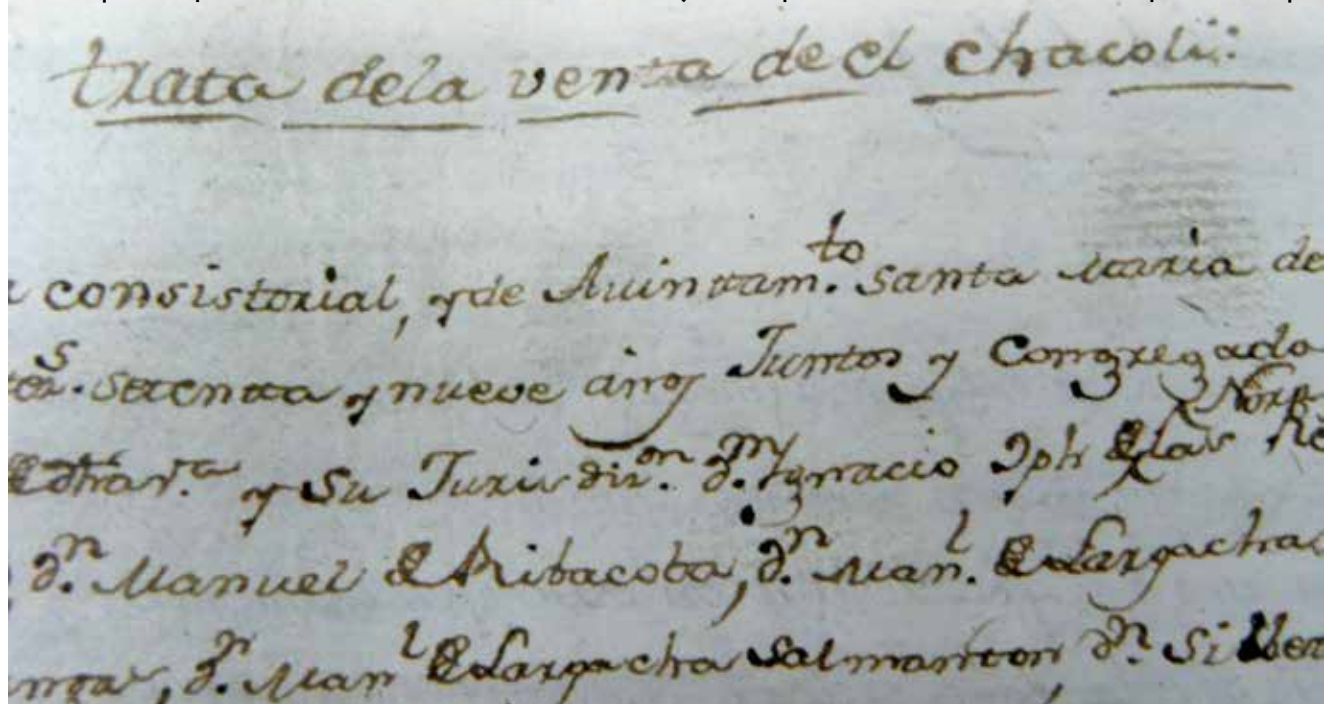 trata dela venta de el chacoli:
consistorial, y de Auintam.to Santa Maria de
setentta y nueve años Juntos y Congregado
y Su Jurisdiz.on d.n Ygnacio Jph de las
d.n Manuel de Ribacoba, d.n Man.l de Largacha
d.n Man.l de Largacha Salmanton, d.n Silber